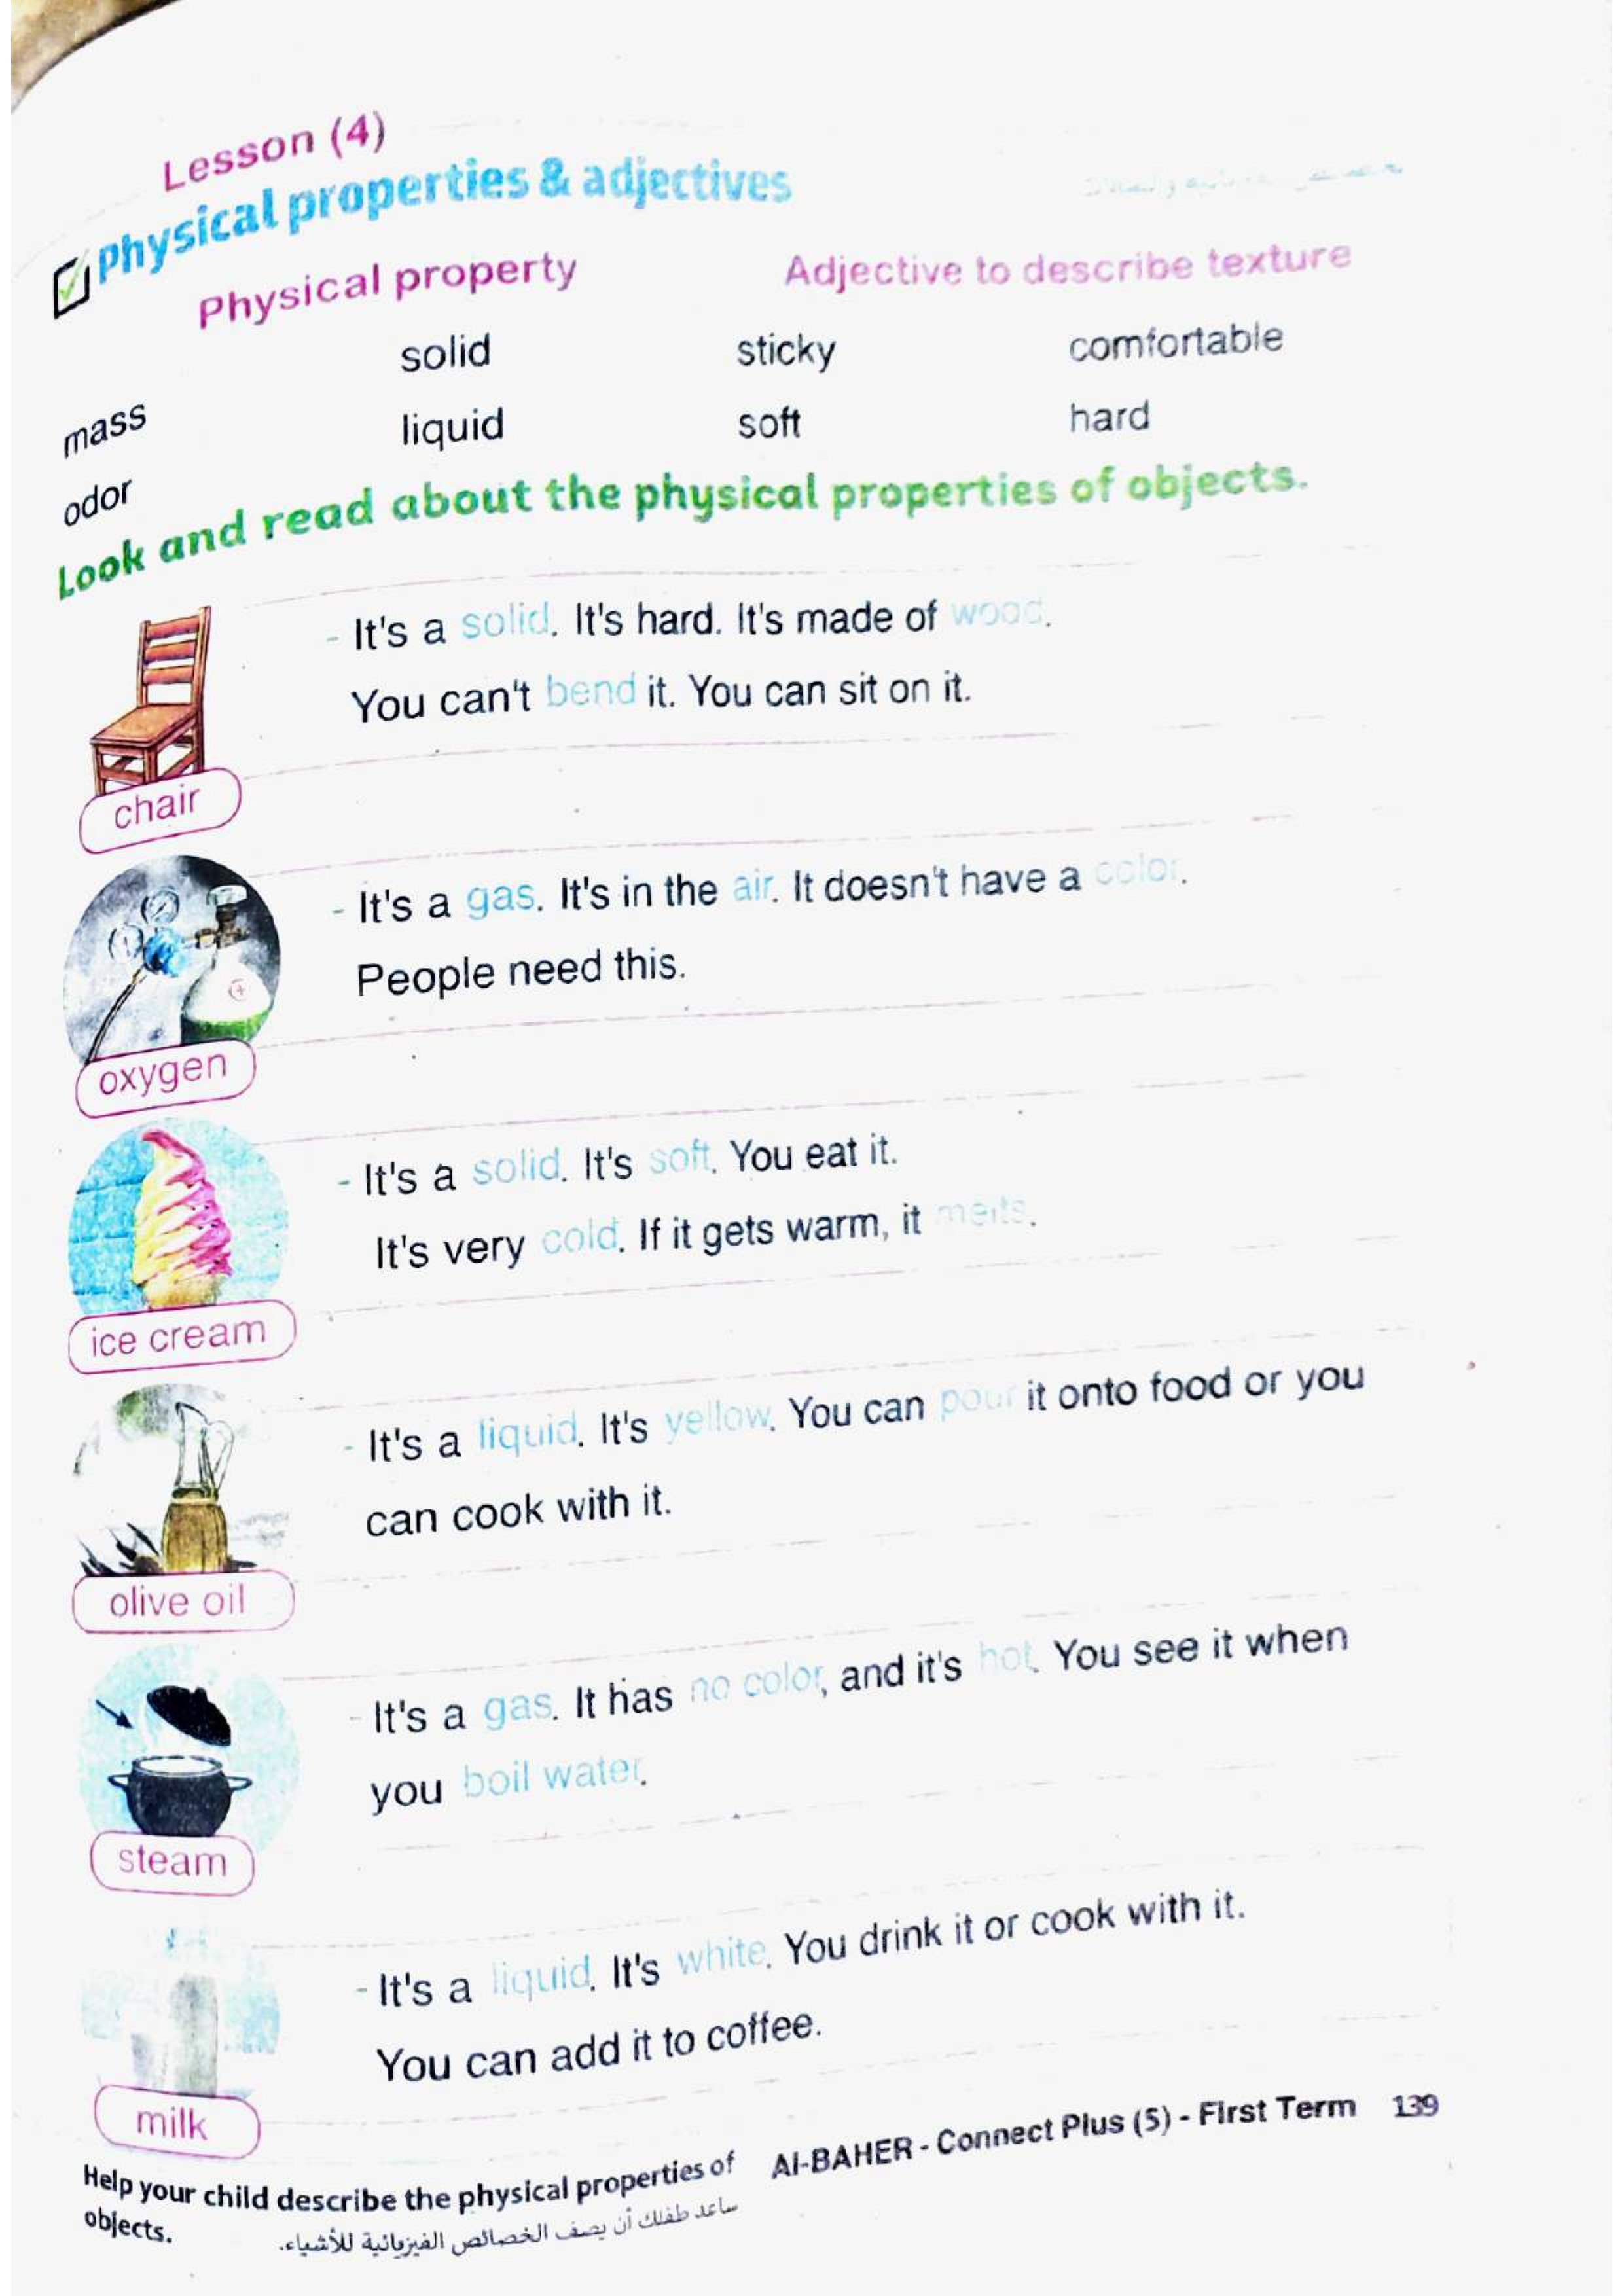 Lesson (4)
Physical properties & adjectives
Physical property Adjective to describe texture
mass solid sticky comfortable
odor liquid soft hard
Look and read about the physical properties of objects.
- It's a solid. It's hard. It's made of wood.
You can't bend it. You can sit on it.
chair
- It's a gas. It's in the air. It doesn't have a color.
People need this.
oxygen
- It's a solid. It's soft. You eat it.
It's very cold. If it gets warm, it melts.
ice cream
- It's a liquid. It's yellow. You can pour it onto food or you
can cook with it.
olive oil
- It's a gas. It has no color, and it's hot. You see it when
you boil water.
steam
- It's a liquid. It's white. You drink it or cook with it.
You can add it to coffee.
milk
Help your child describe the physical properties of
objects.
ساعد طفلك أن يصف الخصائص الفيزيائية للأشياء.
Al-BAHER - Connect Plus (5) - First Term 139